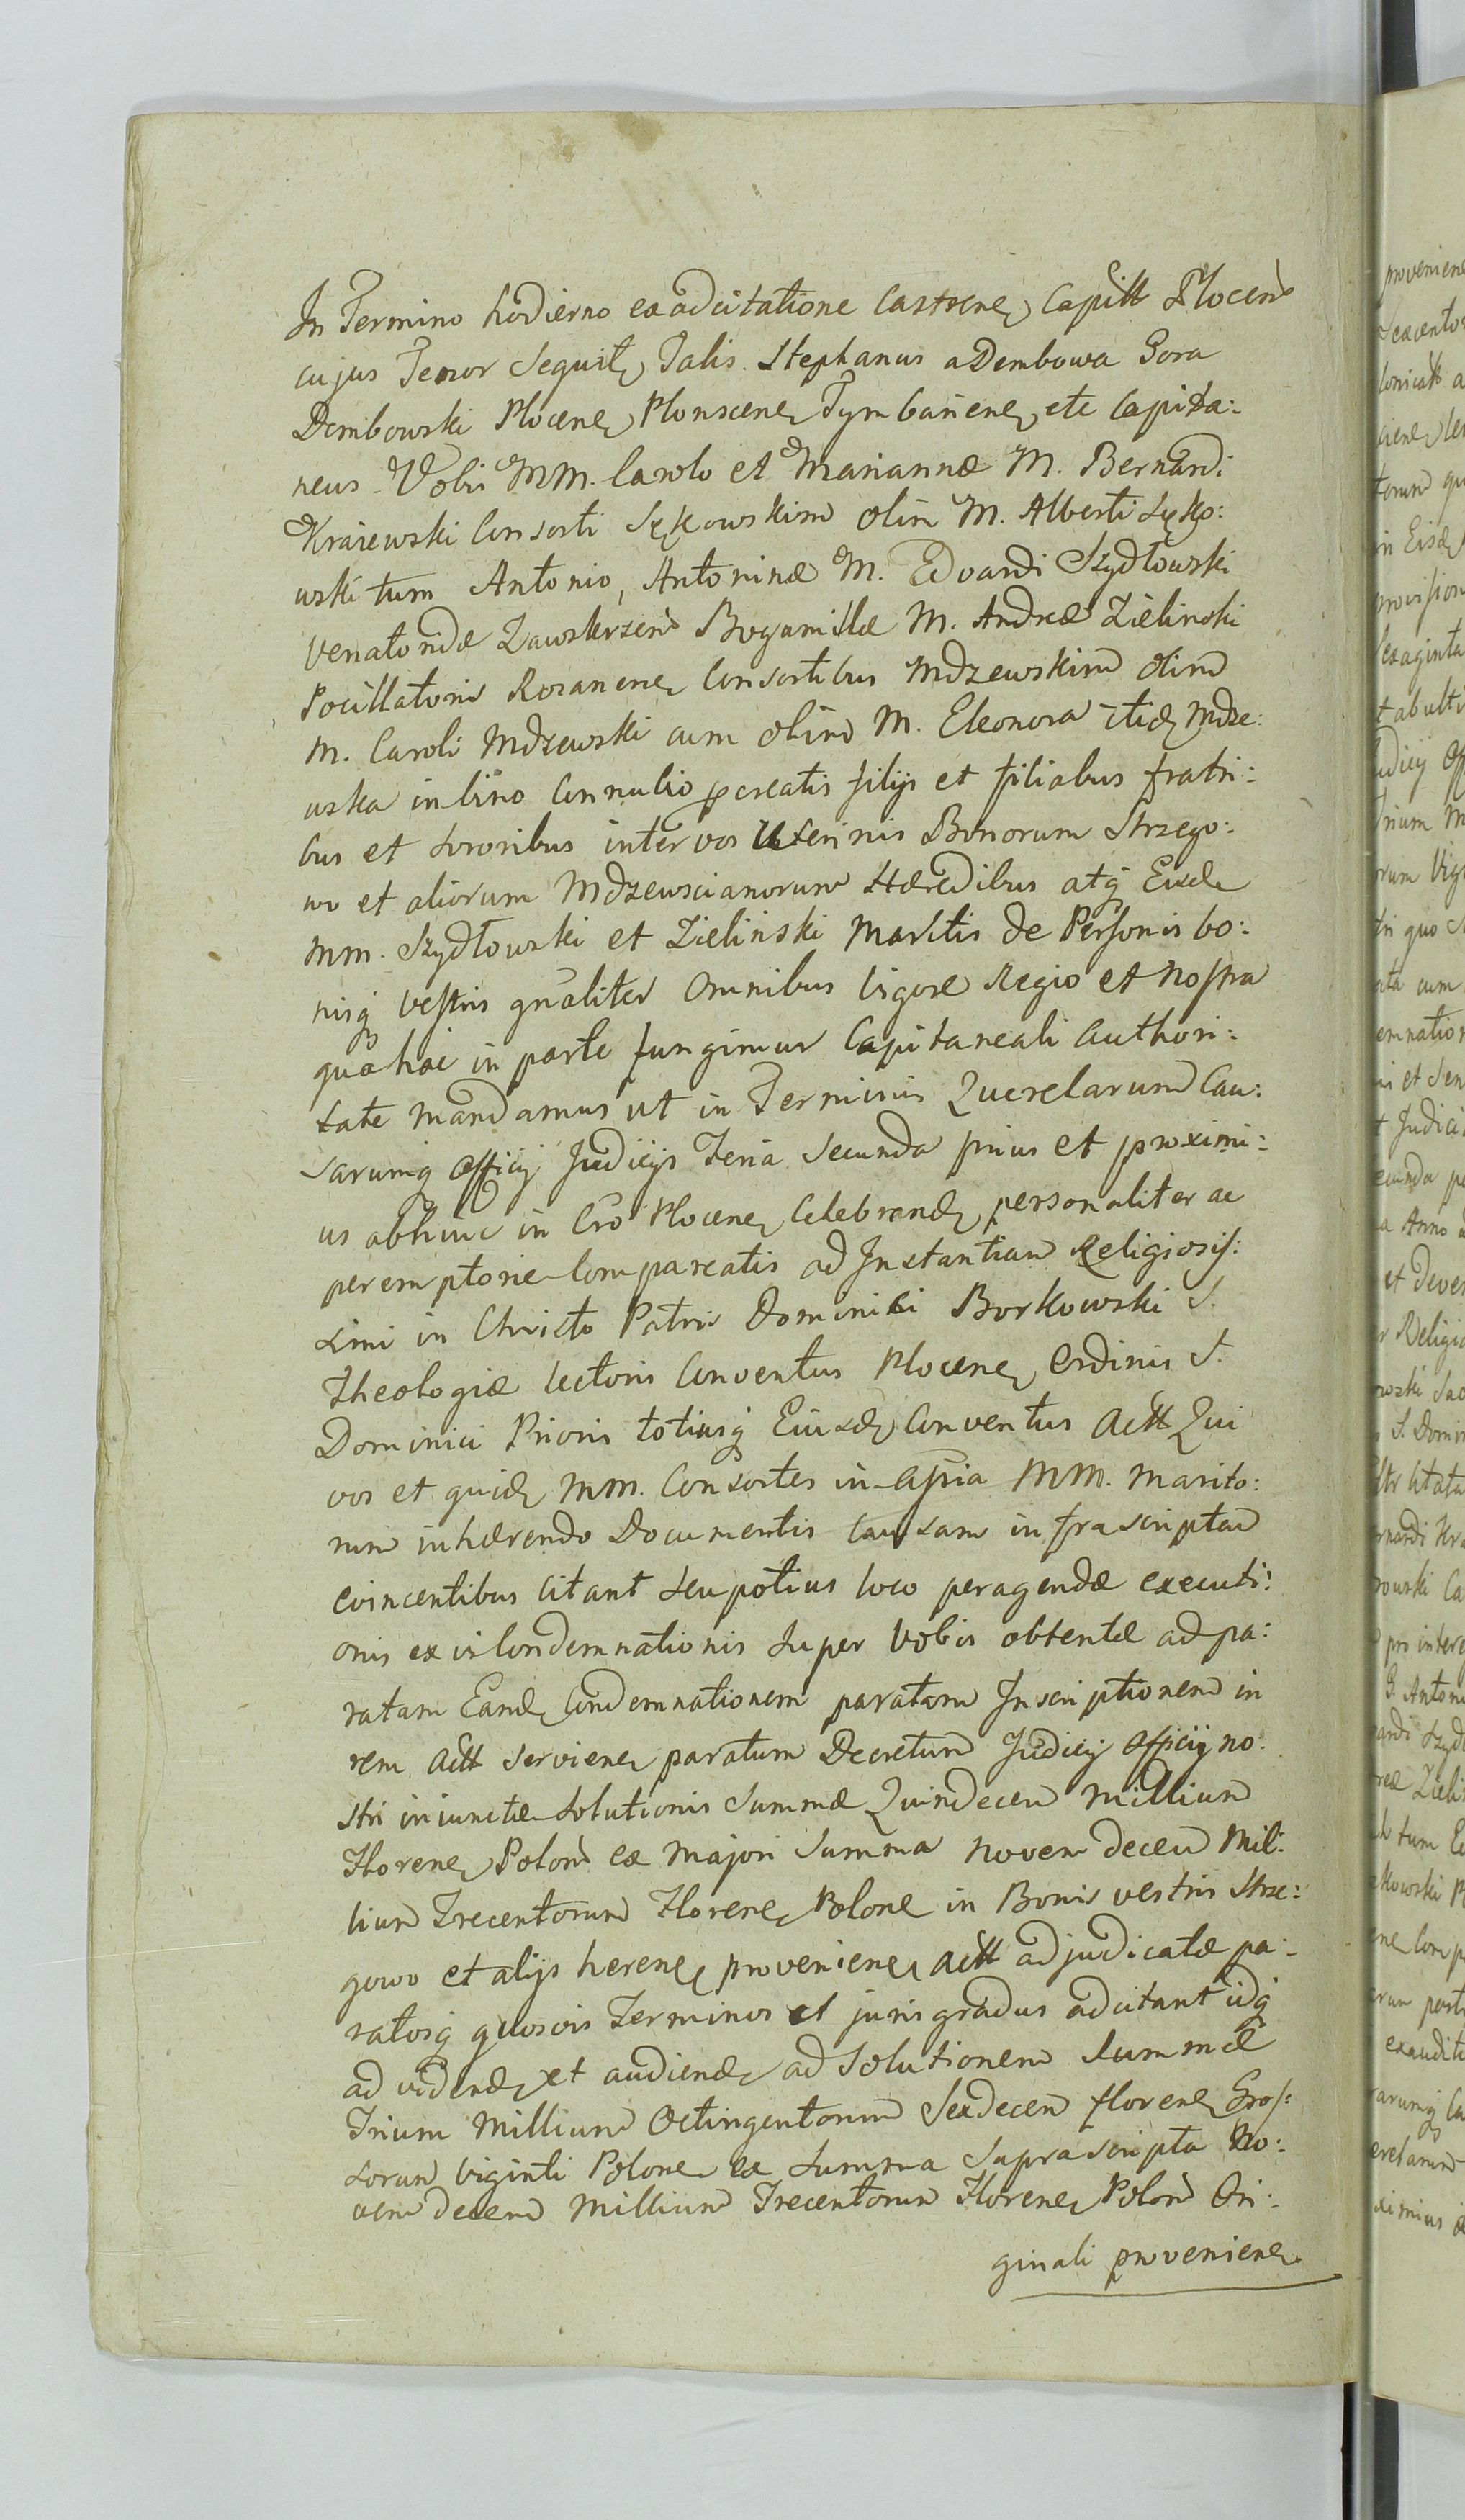 In Termino hodierno ex adcitatione Castrene Capitt Plocen
cujus Tenor Sequit Talis. Stephanus a Dembowa Gora
Dembowski Plocene Plonscene Tymbariene etc Capita:
neus. Vobis MM. Carolo et Mariannæ M. Bernardi
Kraiewski Consorti Sękowskim olim M. Alberti Sęko:
wski tum Antonio, Antoninæ M. Edvardi Szydłowski
Venatoridæ Zawskrzen Bogumillæ M. Andreæ Zielinski
Pocillatoris Rozanene Consortibus Mdzewskim olim
M. Caroli Mdzewski cum olim M. Eleonora itid Mdze:
wska in bino Connubio pcreatis filijs et filiabus fratri:
bus et Sororibus inter vos Uterinis Bonorum Strzego:
wo et aliorum Mdzewscianorum Hæredibus atq Eisd
MM. Szydłowski et Zielinski Maritis de Personis bo:
nisq vestris gnaliter Omnibus Vigore Regio et Nostra
qua hac in parte fungimur Capitaneali Authori:
tate Mandamus ut in Terminis Querelarum Cau:
sarumq Officij Judicijs Feria Secunda prius et proximi:
us abhinc in Cro Plocene Celebrand personaliter ac
peremptorie Compareatis ad Instantiam Religiosis:
simi in Christo Patris Dominici Borkowski S.
Theologiæ Lectoris Conventus Plocene Ordinis S.
Dominici Prioris totiusq Eiusd Conventus Actt Qui
vos et quid MM. Consortes in Assia MM. Marito:
rum inhærendo Documentis Causam infrascriptam
evincentibus Citant Seu potius loco peragendæ executi:
onis ex vi Condemnationis Super Vobis obtentæ ad pa:
ratam Eand Condemnationem paratam Inscriptionem in
rem Actt Serviene paratum Decretum Judicij Officij no:
stri iniunctæ Solutionis Summæ Quindecem Millium
Florene Polon ex Majori Summa Novem decem Mil:
lium Trecentorum Florene Polone in Bonis vestris Strze:
gowo et alijs herene proveniene Actt adjudicatæ pa:
ratosq quosvis Terminos et juris gradus adcitant idq
ad vidend et audiend ad Solutionem Summæ
Trium Millium Octingentorum Sexdecem florene Gros:
sorum Viginti Polone ex Summa Suprascripta No:
vem decem Millium Trecentorum Florene Polon Ori:
ginali proveniene